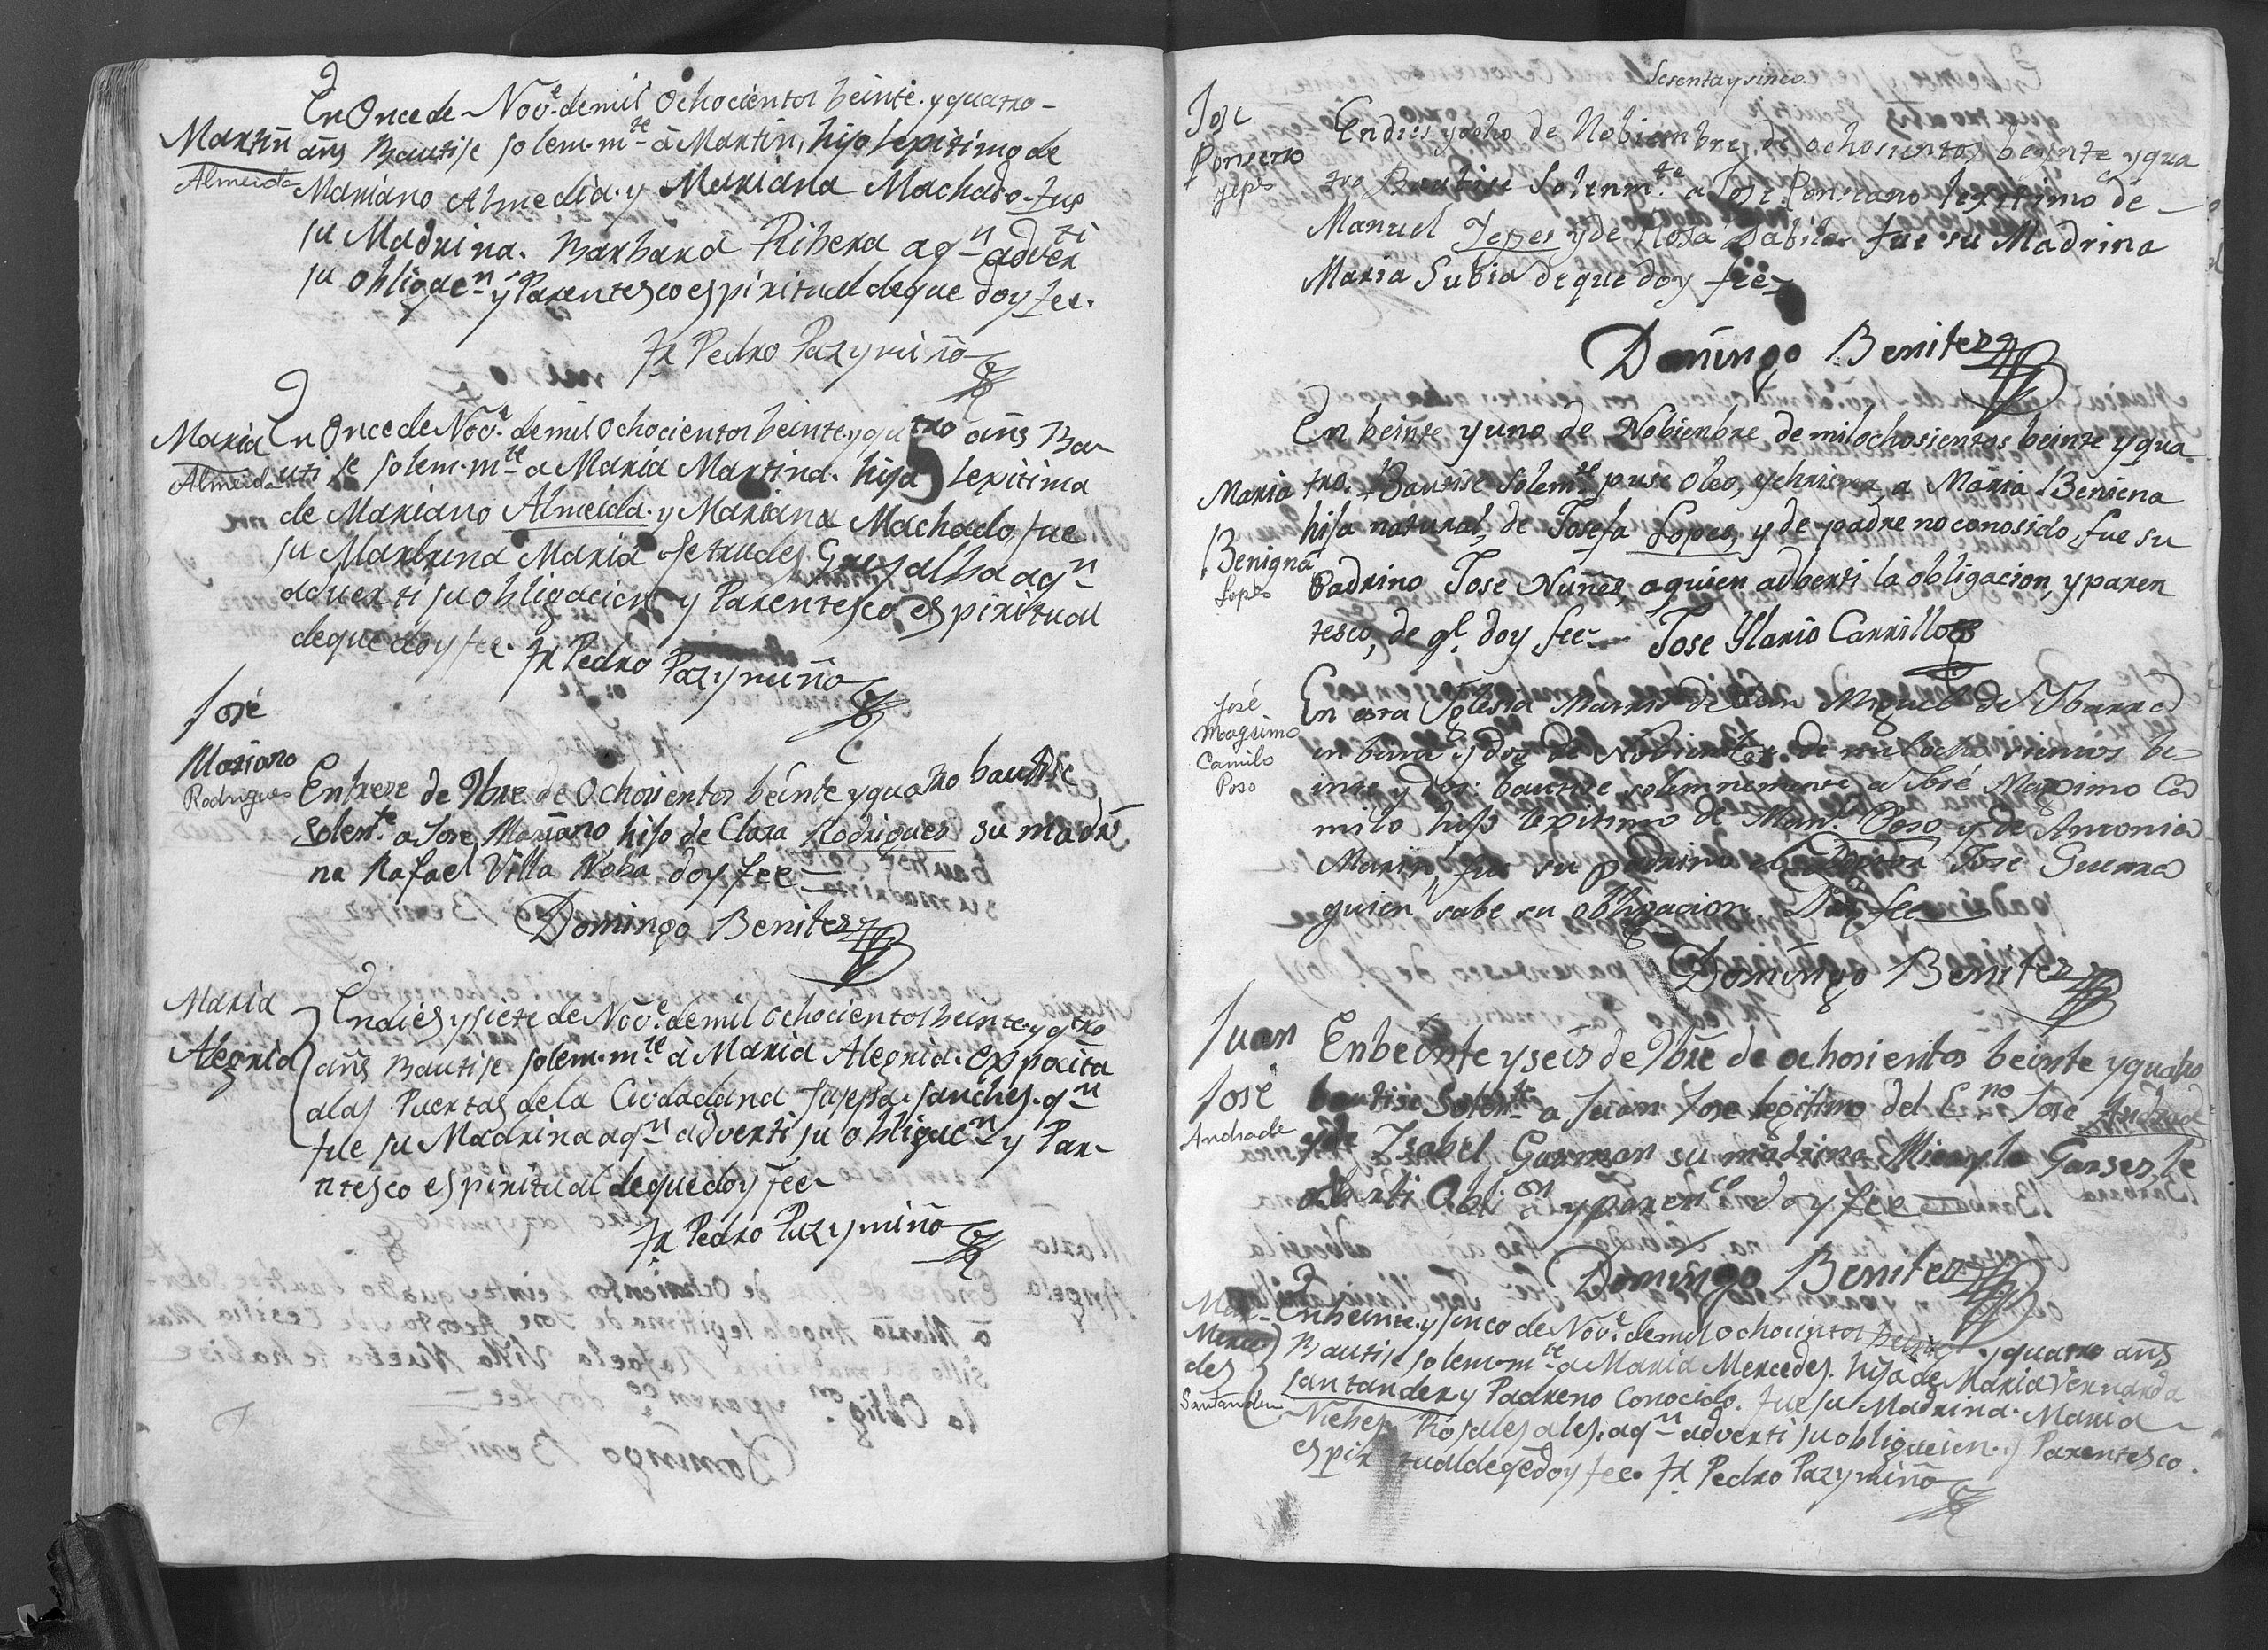 En Once de Nov.e de mil Ochocientos beinte y quatro
Martin
Almeida
añs Bautise solem.mte â Martin, hijo lexitimo de
Mariano Almedia y Mariana Machado fue
su Madrina. Barbara Ribera aqn adverti
su obligacn y Parentesco espiritual deque doy fee.
Fr Pedro Pazymiño
Maria
Almeida
En Once de Nov.e de mil Ochocientos beinte y quatro añs Ba
utise solem.mte a Maria Martina. hija lexitima
de Mariano Almeida. y Mariana Machado, fue
su Marbrina Maria Jetrudes Greyalba aqn
adverti su obligacion y Parentesco espiritual
deque doy fee. Fr Pedro Pazymiño
José
Mariano
Rodrigues
En trese de 9bre de Ochosientos beinte y quatro bautise
Solente a Jose Mariano hijo de Clara Rodrigues su madri
na Rafael Villa Noba doy fee
Domingo Benites
Maria
Alegria
En dies y siete de Nov.e de mil Ochocientos beinte y qtro
añs Bautise solem.mte â Maria Alegria. expocita
alas Puertas dela Ciudadana Josepa. sanches. qn
fue su Madrina aqn adverti su obligacn y Par-
ntesco espiritual deque doy fee
Fr Pedro Pazymiño
Sesenta y sinco.
Jose
Ponseno
Yepes
En dies y ocho de Nobiembre de ochosientos beynte y qua
tro Bautise Solenmte a Jose Ponseano lexitimo de
Manuel Jepes y de Rosa Dabila fue su Madrina
Maria Subia de que doy fee
Domingo Benites
En beinte y uno de Nobiembre de mil ochosientos beinte y qua
Maria
Benigna
Lopes
tro. Bautise Solemte puse Oleo, y chrisma, a Maria Beniena
hija natural, de Josefa Lopes, y de padre no conosido, fue su
Padrino Jose Nuñes, a quien adberti la obligacion, y paren
tesco, de q.l doy fee Jose Ylario Carrillo
José
Magsimo
Camilo
Poso
En esta Yglesia Matris de San Miguel de Ybarra
en beinte y dos de Nobiembre de mil ocho sientos be-
inte y dos: bautise solemnemente a José Maximo Ca
milo hijo lexitimo de Man.l Poso y de Antonia
Marin, fue su padrino el Jose Guerra
quien sabe su obligacion. Doy fee
Domingo Benites
Juan
José
Andrade
En beinte y seis de 9bre de ochosientos beinte y quatro
bautise Solente a Juan Jose legitimo del C.no Jose Andrade
y de Isabel Gusman su madrina Micayla Garses, le
adberti Obli.on y paren.co doy fee
Domingo Benites
Mar-
Merce
des
Santander
En beinte y sinco de Nov.e de mil ochocintos beint y quatro añs
Bautise solem.mte a Maria Mercedes. hija de Maria Vernarda
santander y Padre no Conocido. fue su Madrina. Maria
Niebes Rosales ales. aqn adverti su obligacien. y Parentesco.
espiritual deqe doy fee. Fr Pedro Pazymiño